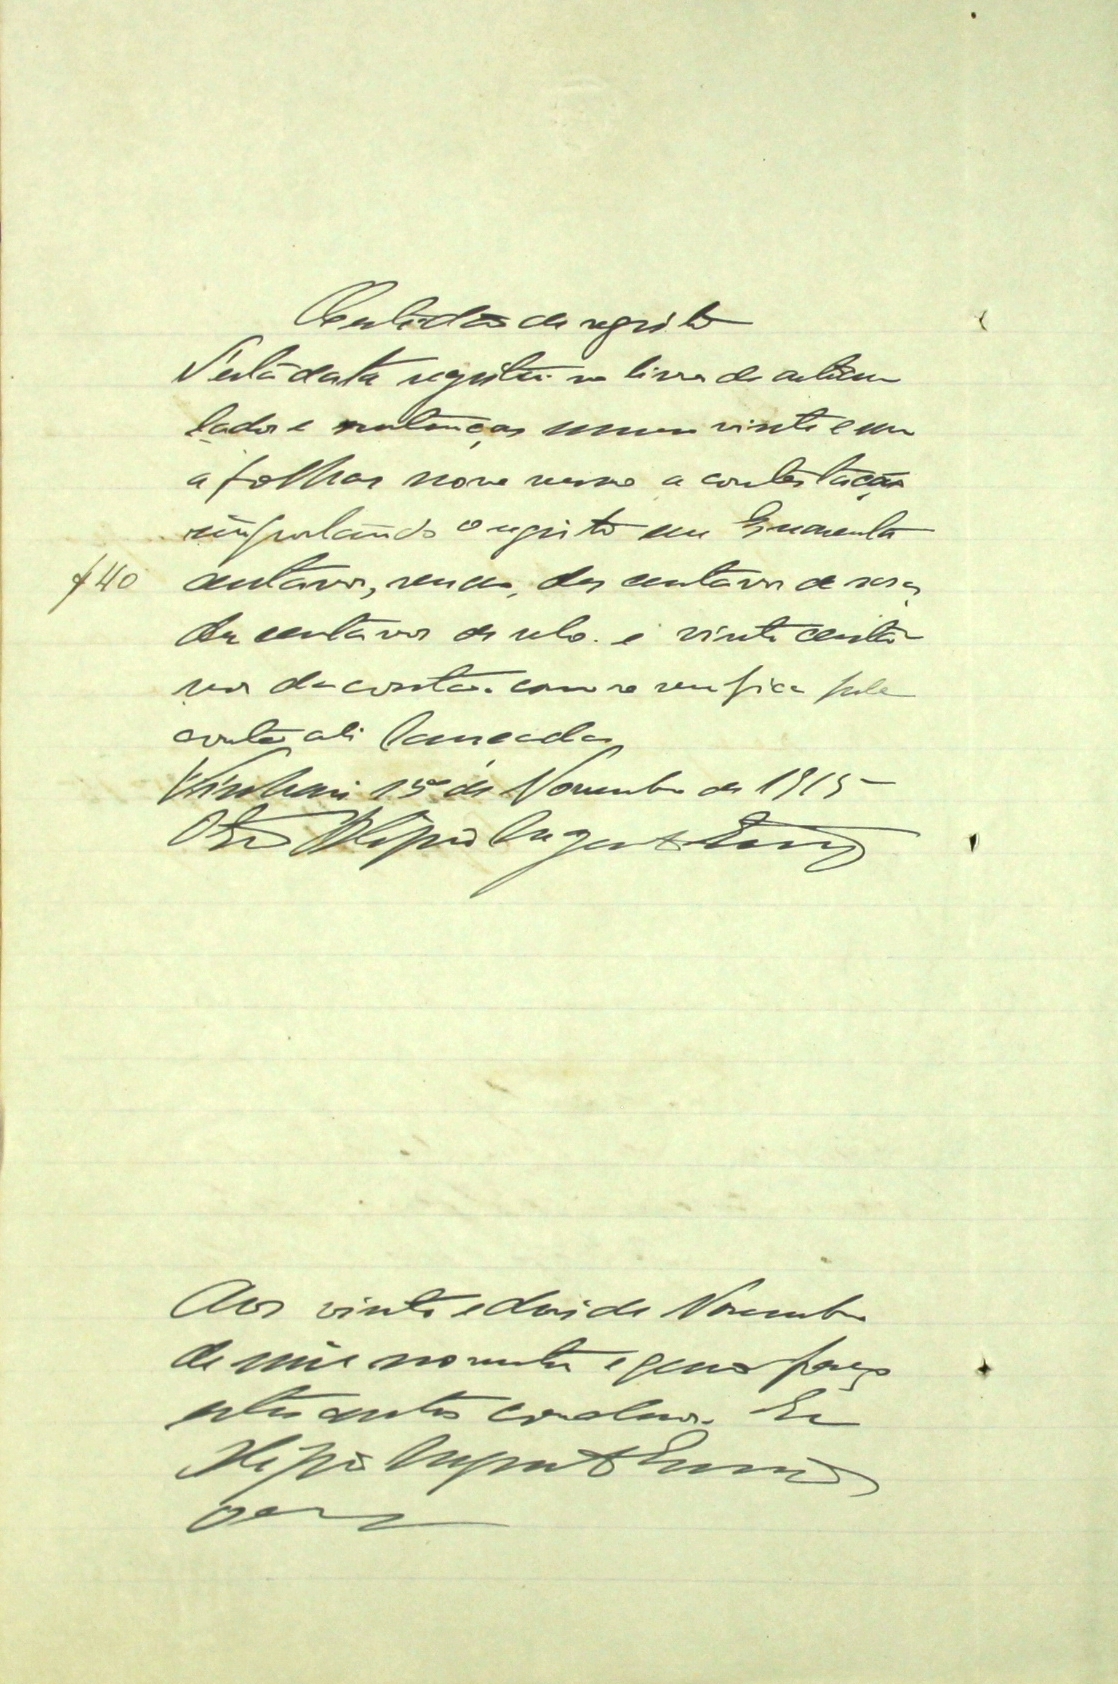 Certidão de registo
N'esta data registei no livro de articu
lados e sentenças numero vinte e um
a folhas nove verso a contestação
importando o registo em quarenta
$40 centavos, sendo, dez centavos de rasa,
dez centavos de selo. e vinte centa-
vos de conta. como se verifica pela
conta ali lançada
15 de Novembro de 1915
O
Aos vinte e dois de Novembro
de mil novecentos e quinze faço
estes autos conclusos. Eu